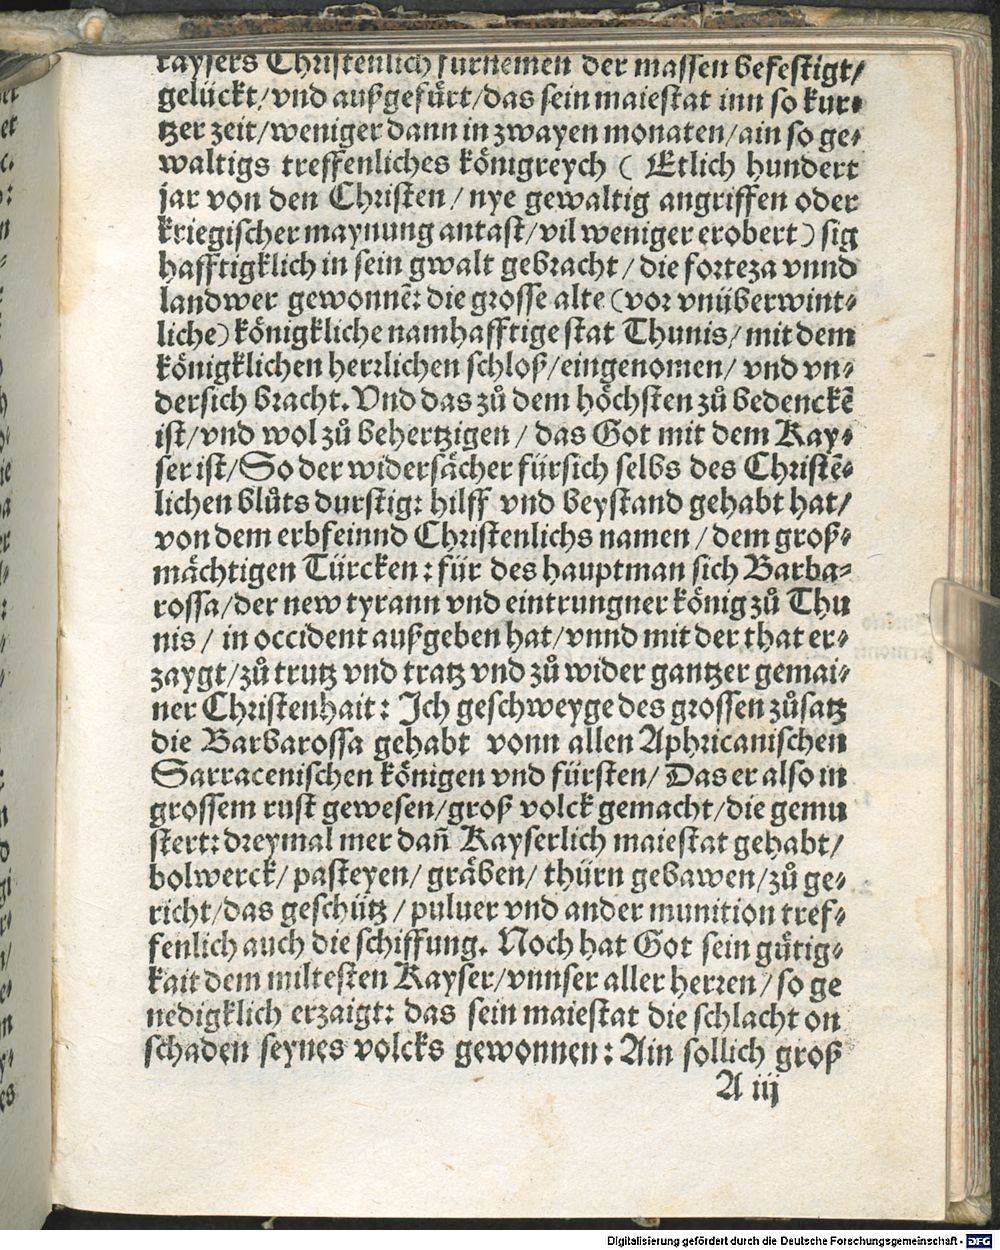 kaysers Christenlich fürnemen der massen befestigt/
gelückt/vnd außgefürt/das sein maiestat inn so kur⸗
tzer zeit/weniger dann in zwayen monaten/ain so ge⸗
waltigs treffenliches königreych ( Etlich hundert
jar von den Christen / nye gewaltig angriffen oder
kriegischer maynung antast/vil weniger erobert) sig
hafftigklich in sein gwalt gebracht / die forteza vnnd
landwer gewonnē: die grosse alte (vor vnüberwint⸗
liche) königkliche namhafftige stat Thunis/ mit dem
königklichen herrlichen schloß/eingenomen/ vnd vn⸗
dersich bracht. Vnd das zů dem höchsten zů bedenckē
ist/vnd wol zů behertzigen / das Got mit dem Kay⸗
ser ist/So der widersächer fürsich selbs des Christē⸗
lichen blůts durstig: hilff vnd beystand gehabt hat/
von dem erbfeinnd Christenlichs namen / dem groß⸗
mächtigen Türcken: für des hauptman sich Barba⸗
rossa/der new tyrann vnd eintrungner könig zů Thu
nis / in occident außgeben hat/vnnd mit der that er⸗
zaygt/zů trutz vnd tratz vnd zů wider gantzer gemai⸗
ner Christenhait: Ich geschweyge des grossen zůsatz
die Barbarossa gehabt vonn allen Aphricanischen
Sarracenischen königen vnd fürsten/ Das er also in
grossem rust gewesen/groß volck gemacht/die gemu
stert: dreymal mer dañ Kayserlich maiestat gehabt/
bolwerck/ pasteyen/ gräben/ thürn gebawen/zů ge⸗
richt/das geschütz / puluer vnd ander munition tref⸗
fenlich auch die schiffung. Noch hat Got sein gütig⸗
kait dem miltesten Kayser/vnnser aller herren/ so ge
nedigklich erzaigt: das sein maiestat die schlacht on
schaden seynes volcks gewonnen: Ain sollich groß
A iij
Digitalisierung gefördert durch die Deutsche Forschungsgemeinschaft - DFG